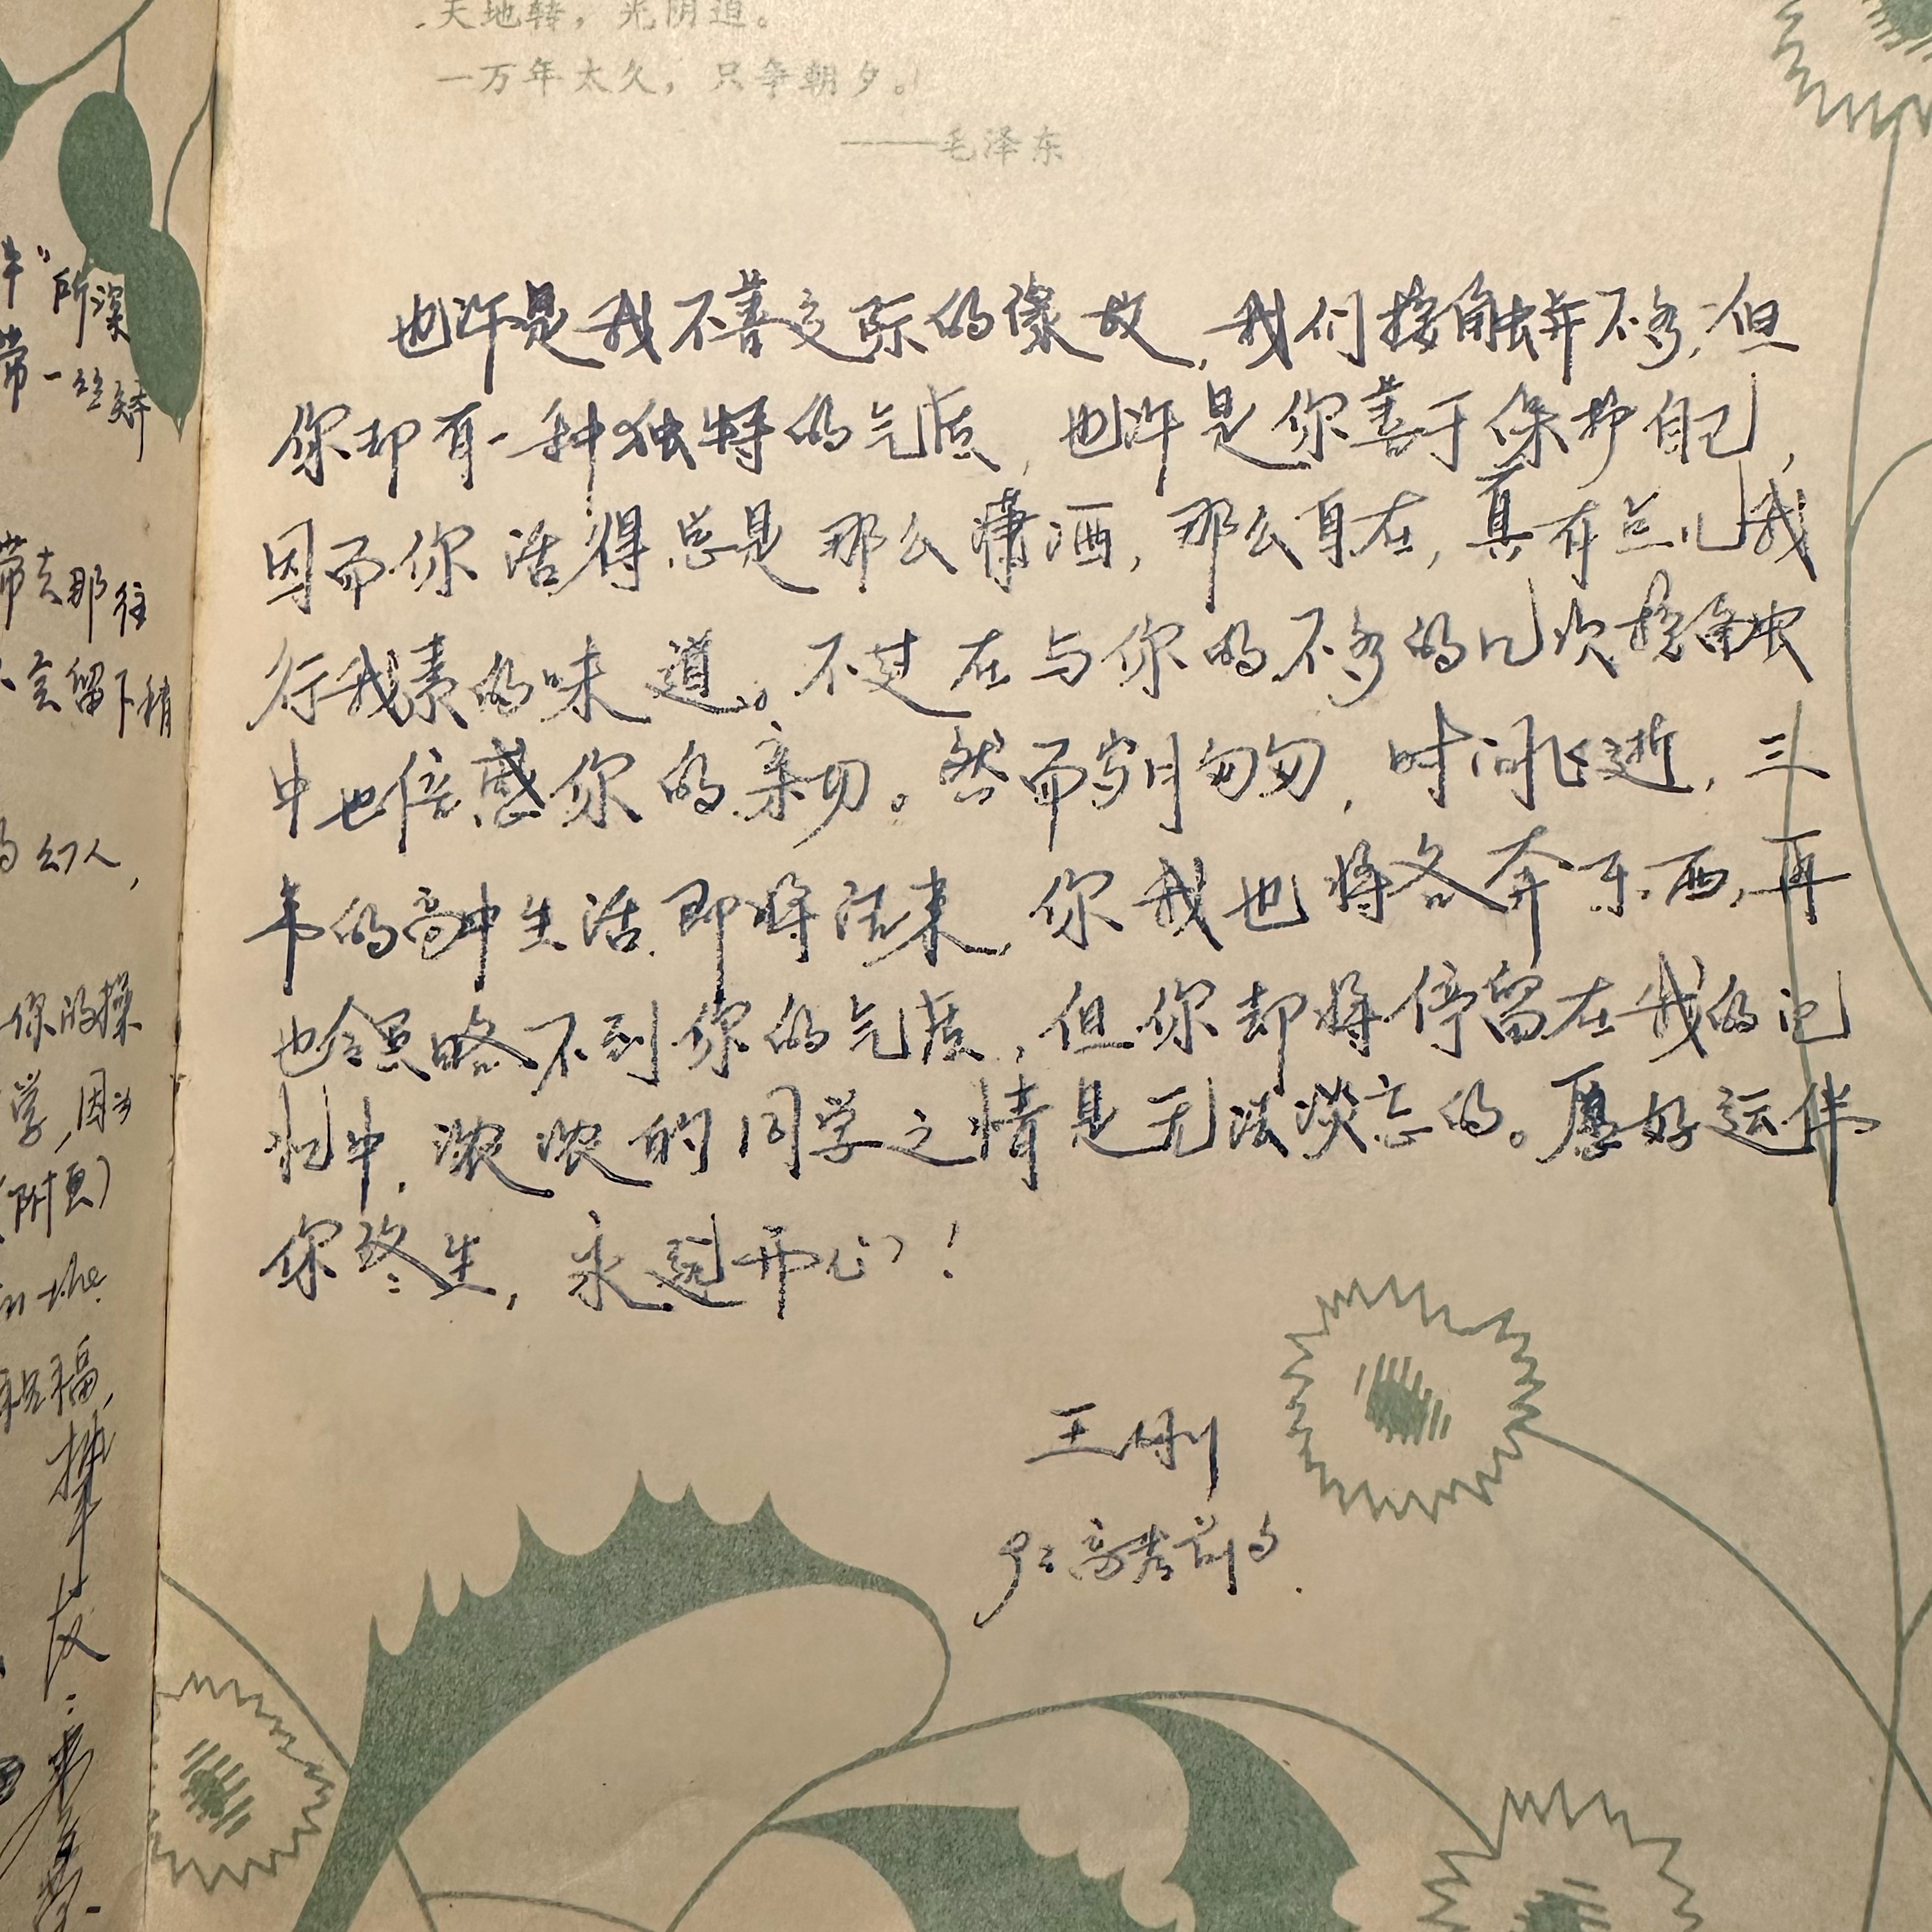 天地转，光阴迫。
一万年太久，只争朝夕。
——毛泽东
也许是我不善交际的缘故，我们接触并不多，但
你却有一种独特的气质，也许是你善于保护自己，
因而你活得总是那么潇洒，那么自在，真有点儿我
行我素的味道。不过在与你的不多的几次接触
中也倍感你的亲切。然而岁月匆匆，时间飞逝，三
年的高中生活即将结束，你我也将各奔东西，再
也领略不到你的气质，但你却将停留在我的记
忆中，浓浓的同学之情是无法淡忘的。愿好运伴
你终生，永远开心！
王刚
高考前
所深
带一丝矫
带去那往
会留下稍
的幻人，
你的操
学，因为
(附页)
in the
祝福，
挚
友：